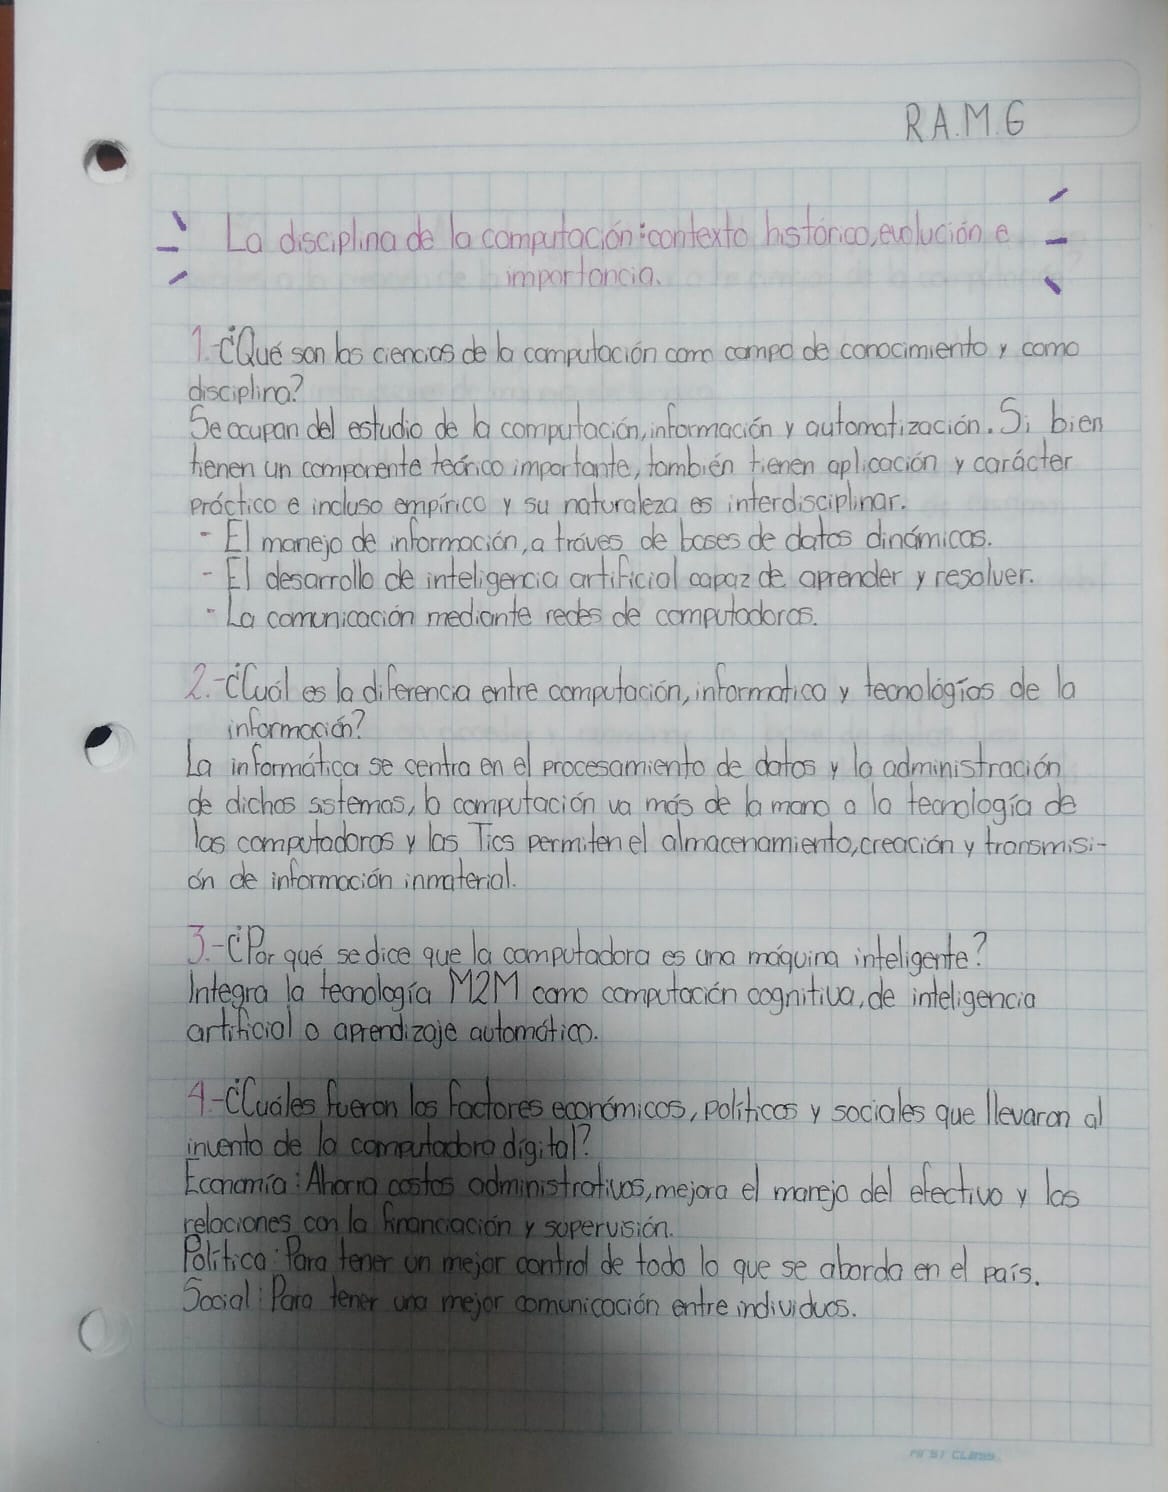 R.A.M.G
La disciplina de la computación: contexto histórico, evolución e
importancia.
1.-¿Qué son las ciencias de la computación como campo de conocimiento y como
disciplina?
Se ocupan del estudio de la computación, información y automatización. Si bien
tienen un componente teórico importante, también tienen aplicación y carácter
práctico e incluso empírico y su naturaleza es interdisciplinar.
- El manejo de información, a tráves de bases de datos dinámicas.
- El desarrollo de inteligencia artificial capaz de aprender y resolver.
- La comunicación mediante redes de computadoras.
2.-¿Cuál es la diferencia entre computación, informatica y tecnológías de la
información?
La informática se centra en el procesamiento de datos y la administración
de dichos sistemas, la computación va más de la mano a la tecnología de
las computadoras y las Tics permiten el almacenamiento, creación y transmisi-
ón de información inmaterial.
3.-¿Por qué se dice que la computadora es una máquina inteligente?
Integra la tecnología M2M como computación cognitiva, de inteligencia
artificial o aprendizaje automático.
4.-¿Cuáles fueron los factores económicos, políticos y sociales que llevaron al
invento de la computadora digital?
Economía: Ahorra costos administrativos, mejora el manejo del efectivo y las
relaciones con la financiación y supervisión.
Política: Para tener un mejor control de todo lo que se aborda en el país.
Social: Para tener una mejor comunicación entre individuos.
FIRST CLASS